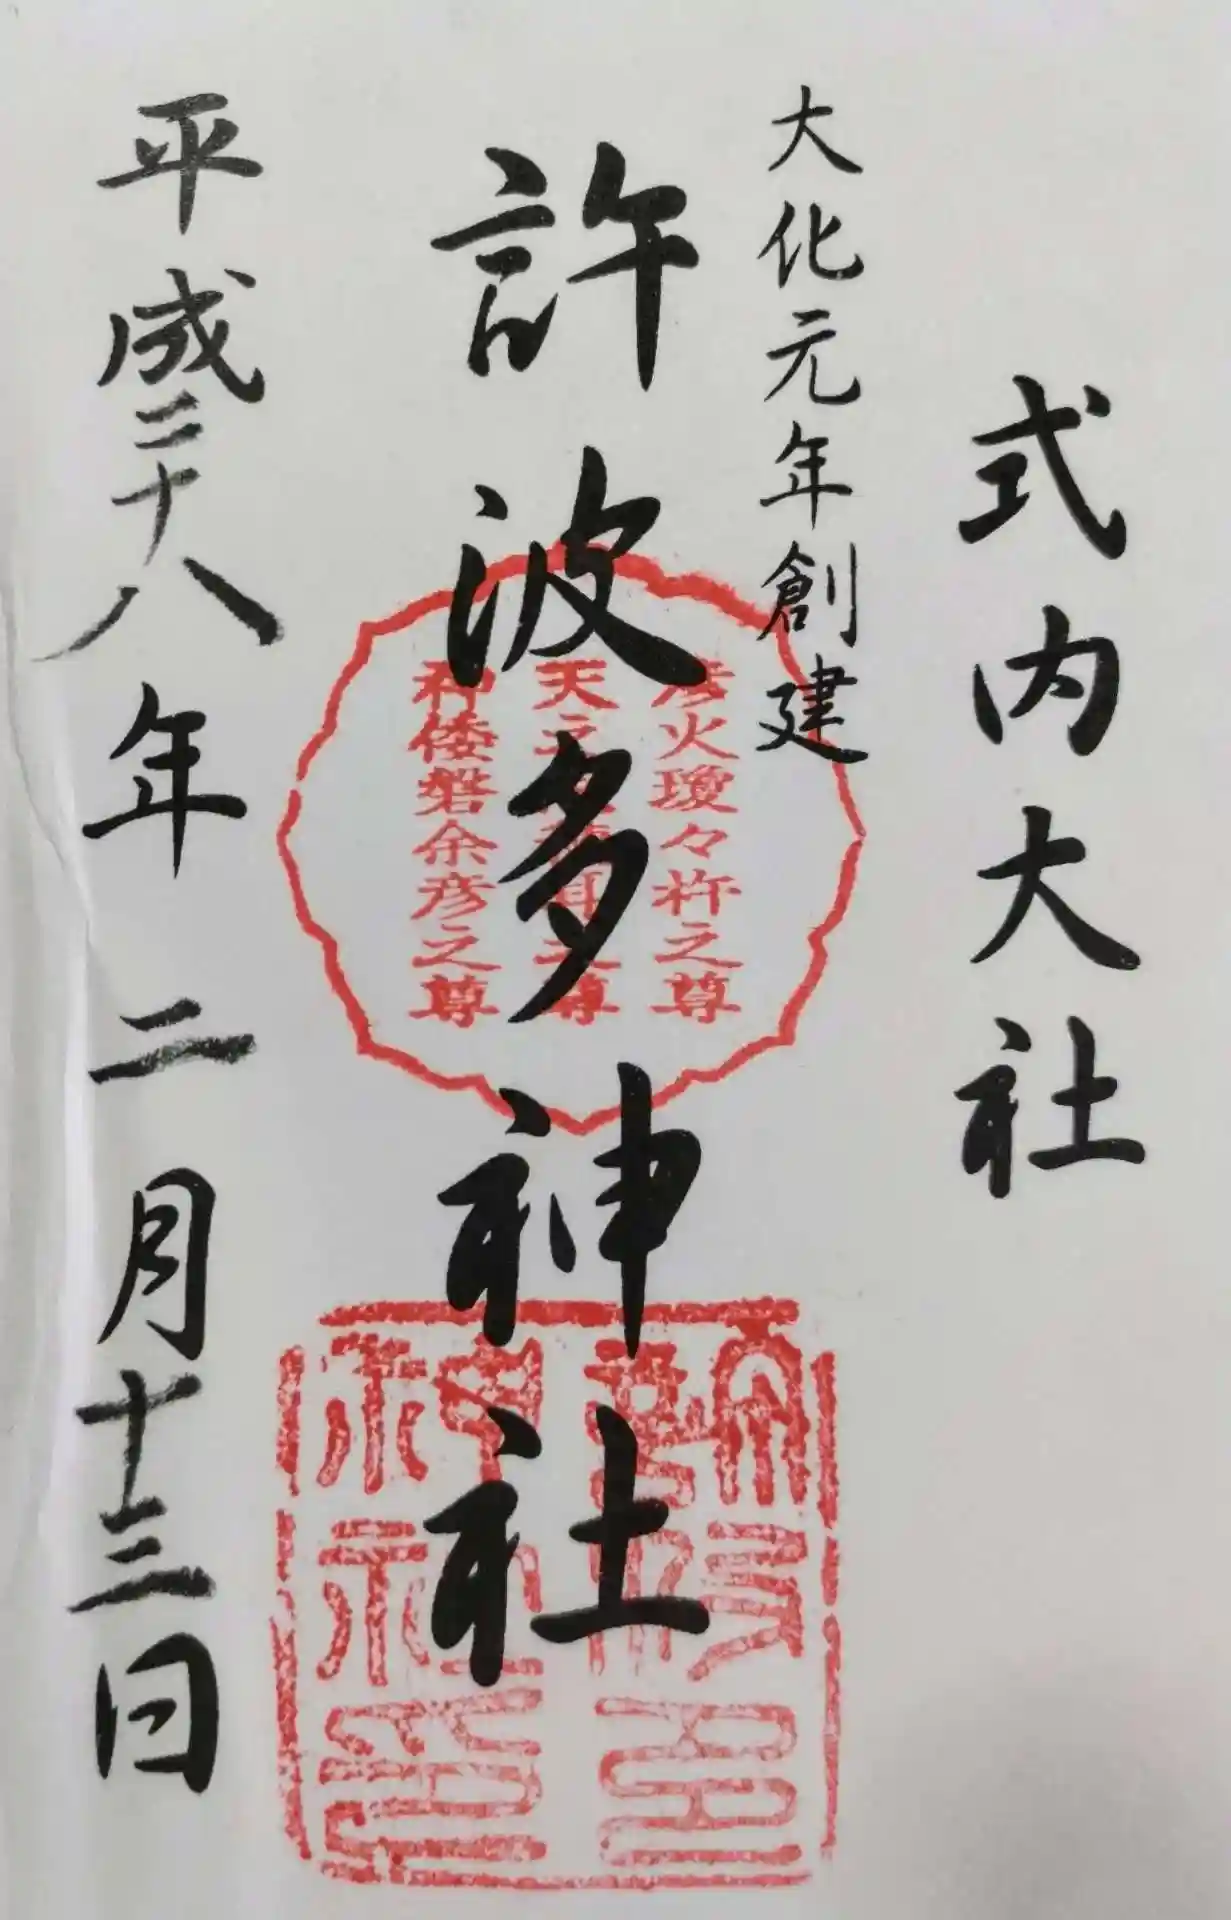 式内大社
大化元年創建
許波多神社
彦火瓊々杵之尊
天之 耳之尊
神倭磐余彦之尊
許波多
神社印
平成二十八年二月十三日